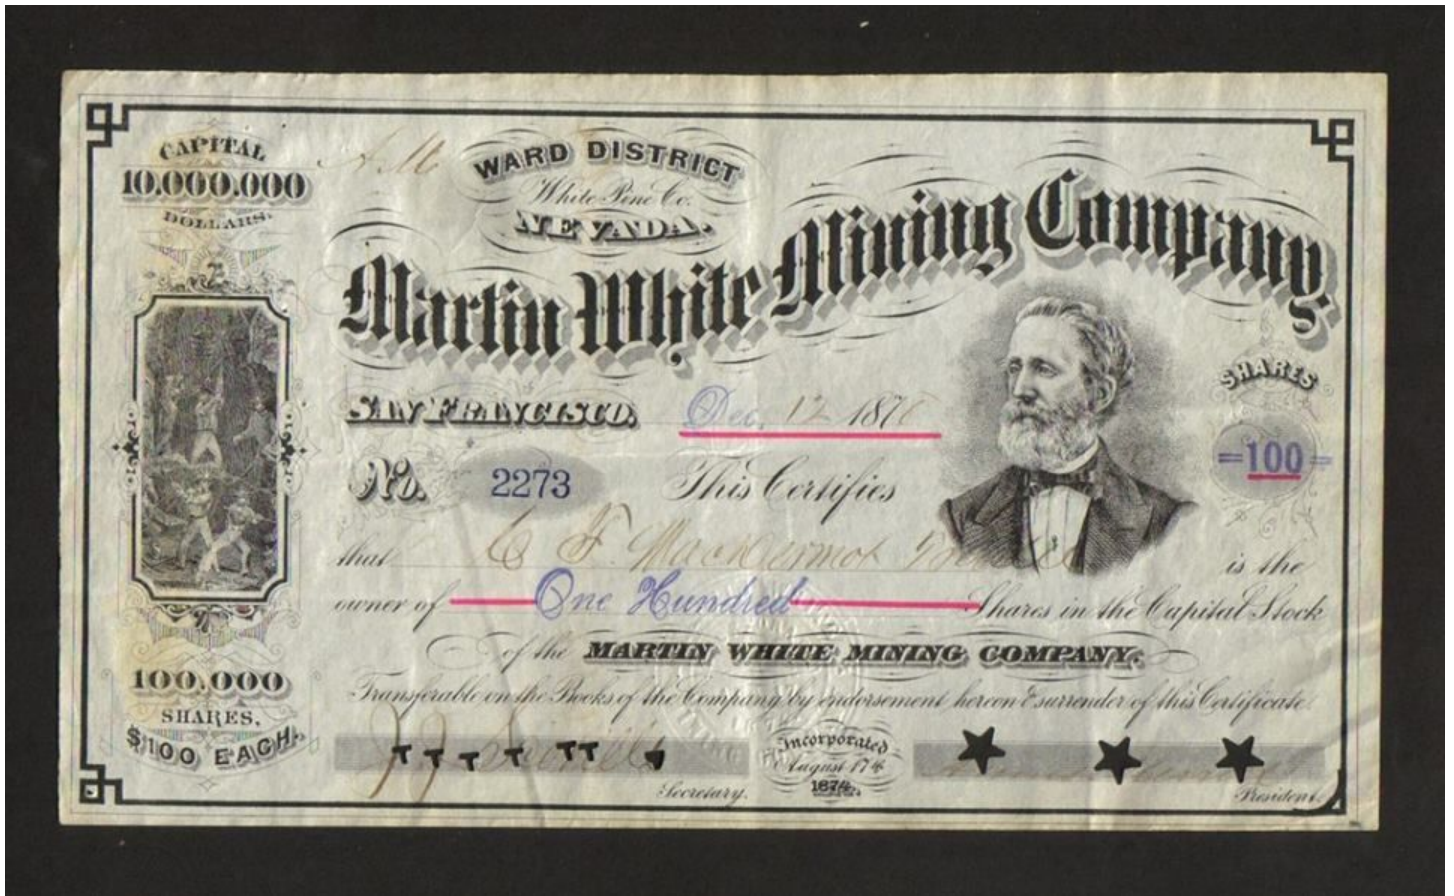 CAPITAL
10,000,000
DOLLARS.
WARD DISTRICT
White Pine Co.
NEVADA.
Martin White Mining Company
SAN FRANCISCO, Dec. 12 187
SHARES
=100=
No. 2273 This Certifies
that C F is the
owner of One Hundred Shares in the Capital Stock
of the MARTIN WHITE MINING COMPANY.
Transferable on the Books of the Company by endorsement hereon & surrender of this Certificate.
100,000
SHARES,
$100 EACH.
Incorporated
August 17th
1874
Secretary.
President.